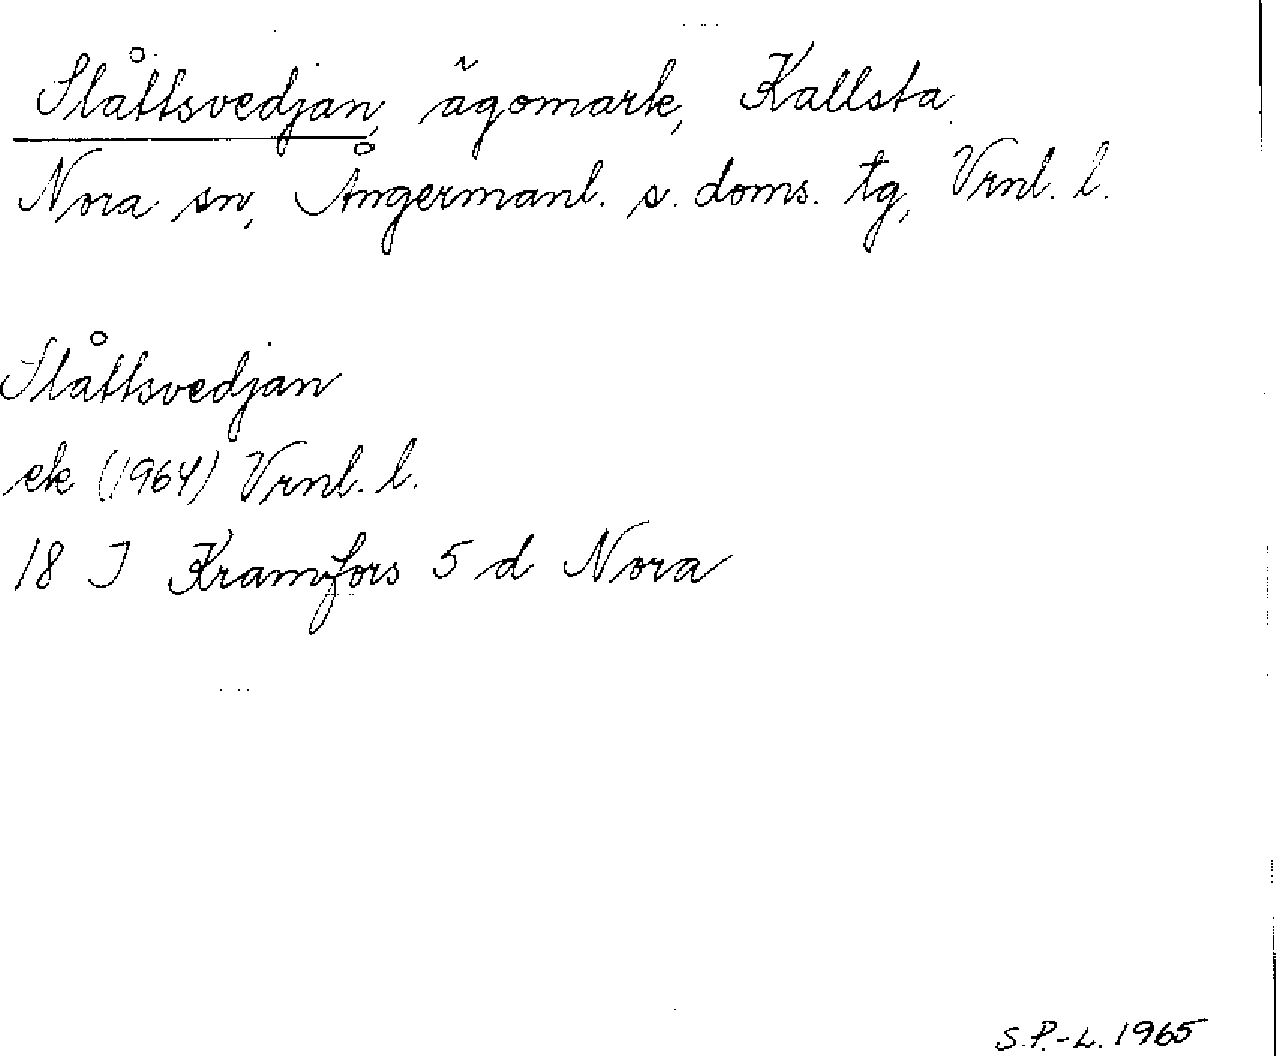 Slåttsvedjan, ägomark, Kallsta.
Nora sn, Ångermanl. s. doms. tg, Vrnl. l.
Slåttsvedjan
ek (1964) Vrnl. l.
18 I Kramfors 5 d Nora
S.P.-L. 1965